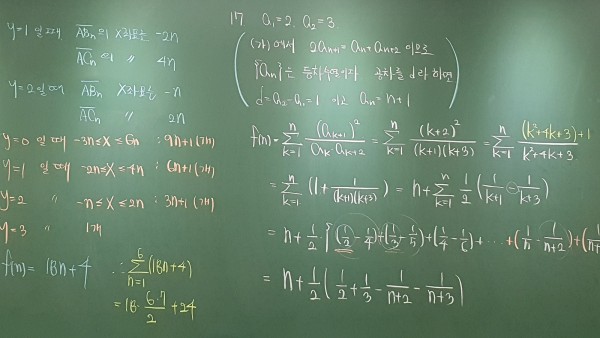 y=1 일 때 AB̅ₙ의 X좌표는 -2n
AC̅ₙ의 〃 4n
y=2일 때 AB̅ₙ X좌표는 -n
AC̅ₙ 〃 2n
y=0 일 때 -3n≤X≤6n : 9n+1 (개)
y=1 일 때 -2n≤X≤4n : 6n+1 (개)
y=2 〃 -n≤X≤2n : 3n+1 (개)
y=3 〃 1개
f(n)= 18n+4 ∴ Σ_{n=1}^{6} (18n+4)
=18·(6·7)/2 +24
17 a₁=2, a₂=3.
(가)에서 2aₙ₊₁=aₙ+aₙ₊₂ 이므로
{aₙ}는 등차수열이다 공차를 d라 하면
d=a₂-a₁=1 이고 aₙ=n+1
f(n)= Σ_{k=1}^{n} (aₖ₊₁)²/(aₖ·aₖ₊₂) = Σ_{k=1}^{n} (k+2)²/((k+1)(k+3)) = Σ_{k=1}^{n} ((k²+4k+3)+1)/(k²+4k+3)
= Σ_{k=1}^{n} (1+ 1/((k+1)(k+3))) = n+ Σ_{k=1}^{n} 1/2 (1/(k+1) - 1/(k+3))
= n+ 1/2 {(1/2-1/4)+(1/3-1/5)+(1/4-1/6)+ ⋯ +(1/n - 1/(n+2))+
= n+ 1/2 (1/2 + 1/3 - 1/(n+2) - 1/(n+3))